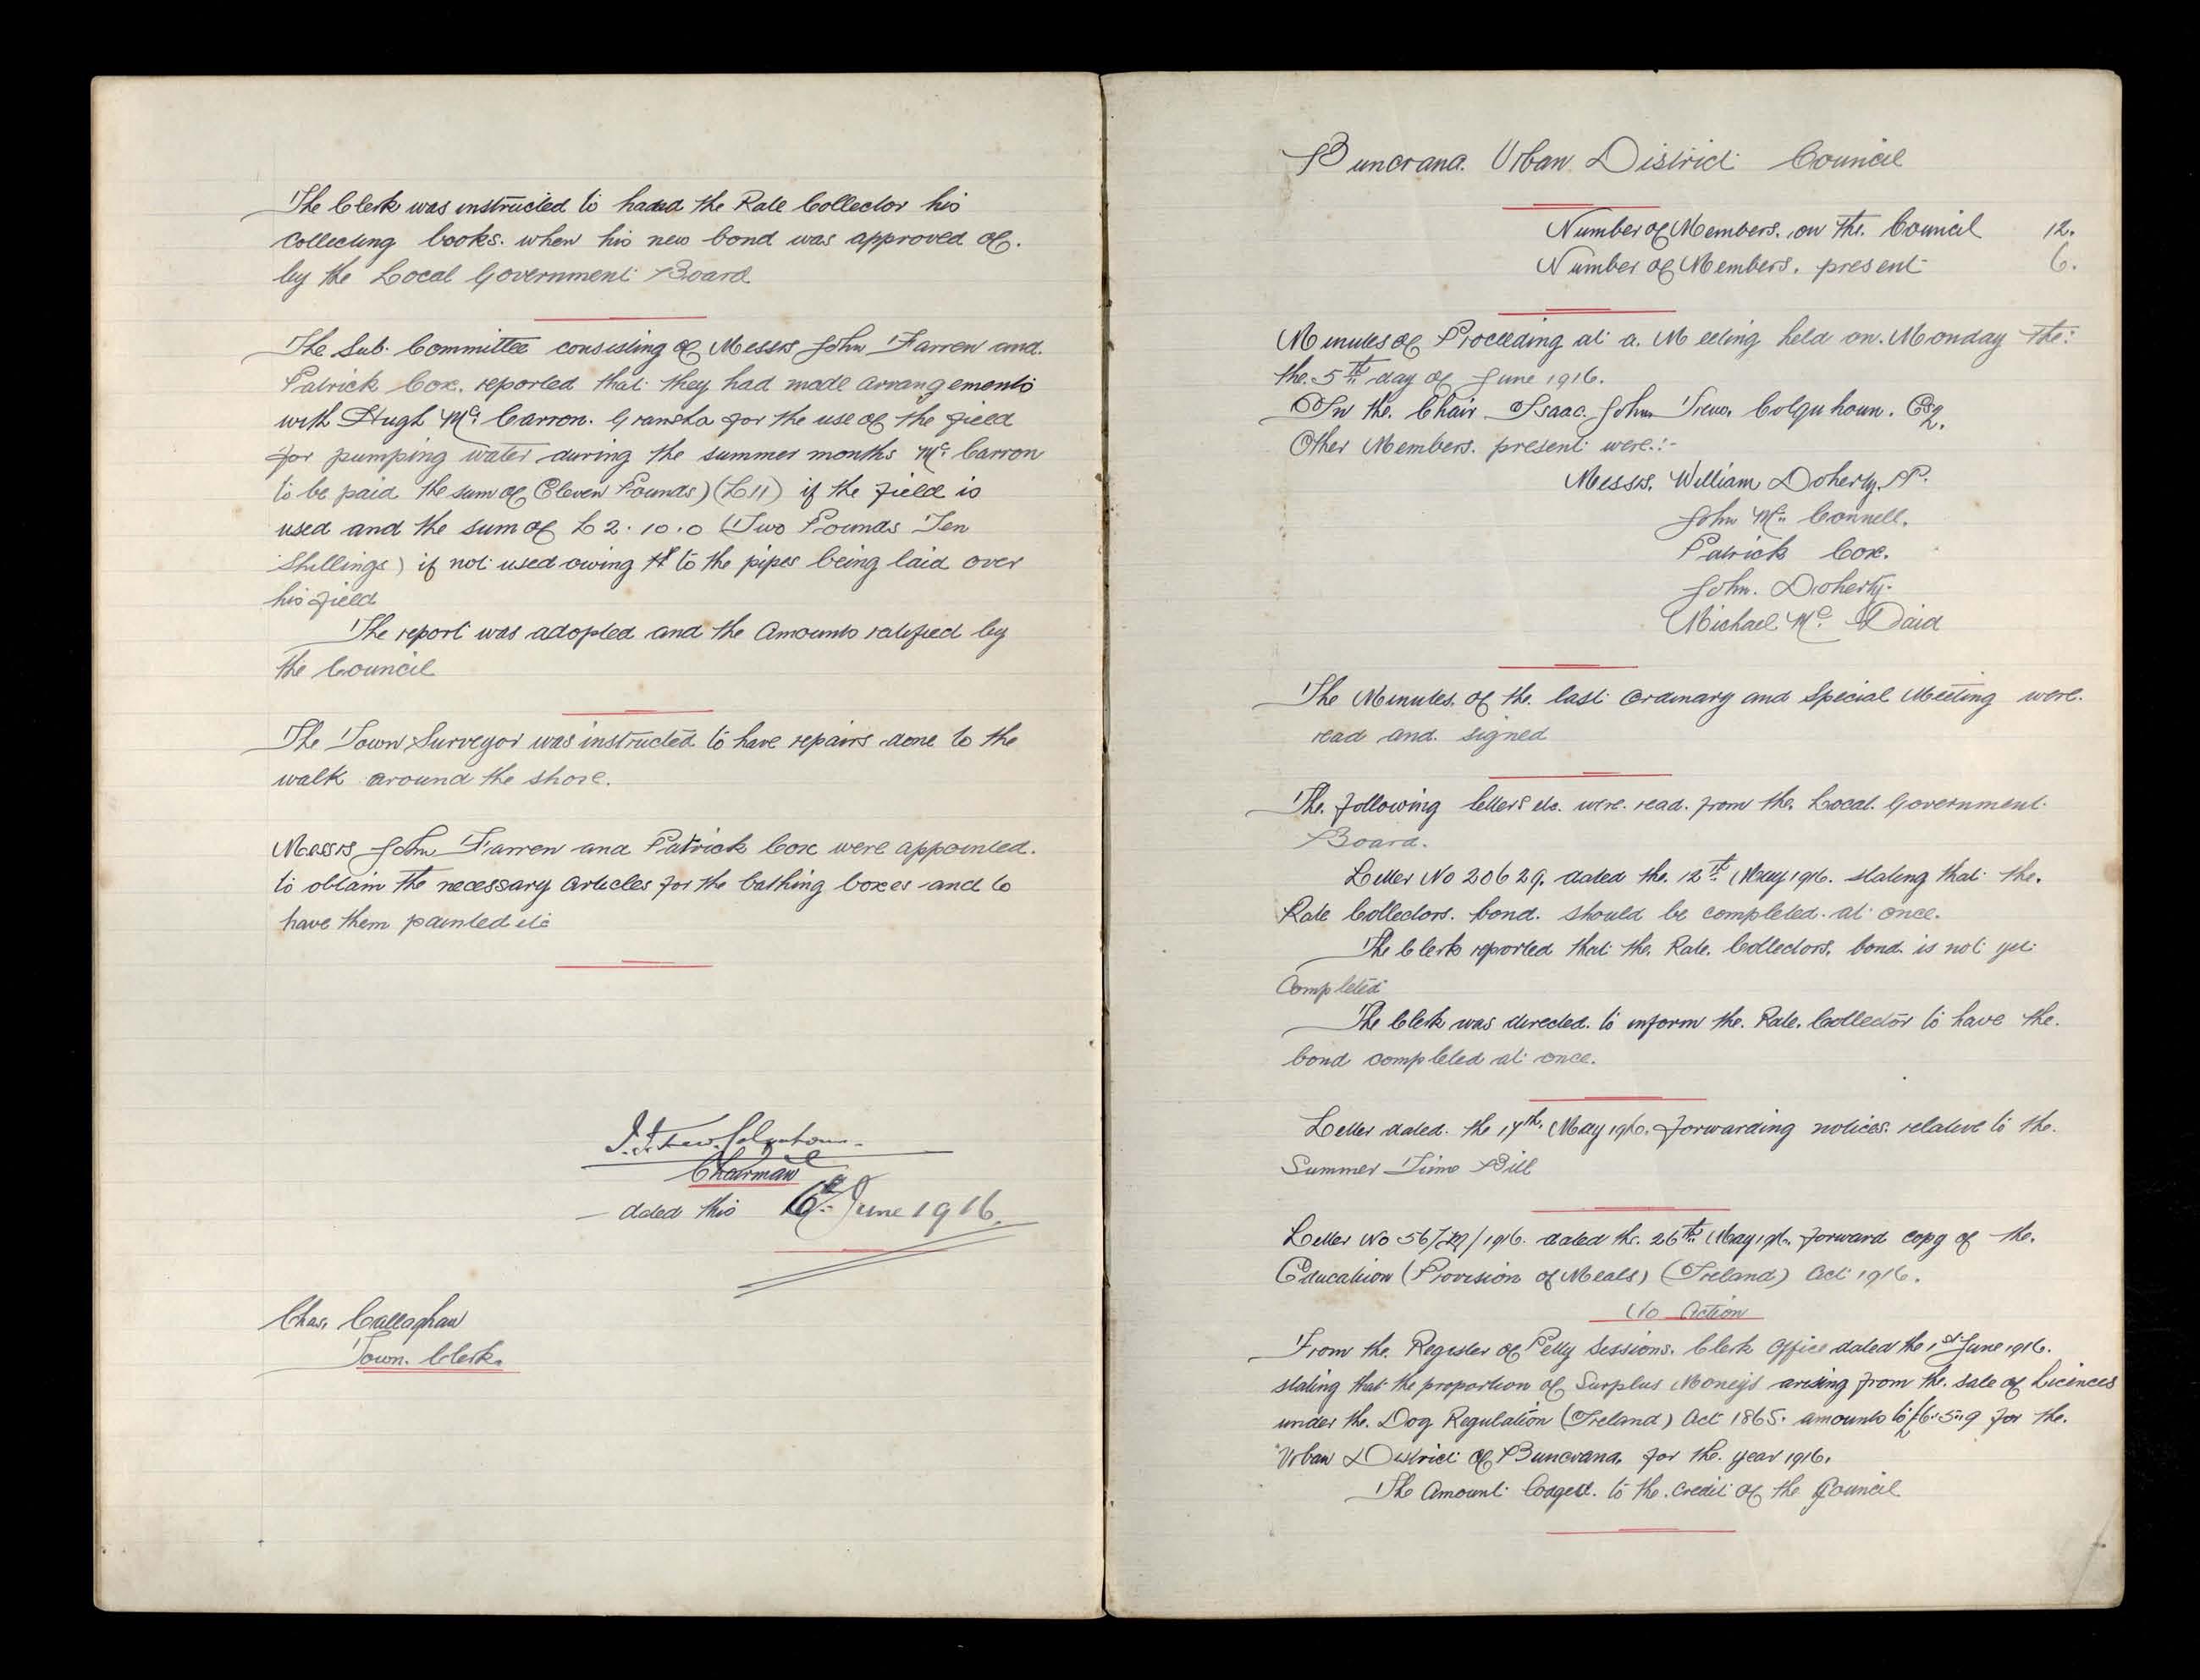 The Clerk was instructed to hand the Rate Collector his
Collecting books. when his new bond was approved of.
by the Local Government Board
The Sub. Committee consisting of Messrs John Farren and.
Patrick Cox. reported that they had made arrangements
with Hugh Mc. Carron. Gransha for the use of the field
for pumping water during the summer months Mc. Carron
to be paid the sum of Eleven Pounds) (£11) if the field is
used and the sum of £2.10.0 (Two Pounds Ten
Shillings) if not used owing to the pipes being laid over
his field
The report was adopted and the Amounts ratified by
the Council
The Town Surveyor was instructed to have repairs done to the
walk around the shore.
Messrs John Farren and Patrick Cox were appointed.
to obtain the necessary articles for the bathing boxes and to
have them painted etc
I. J. Trew. Colquhoun.
Chairman
dated this 6th June 1916.
Chas. Callaghan
Town. Clerk.
Buncrana. Urban District Council
Number of Members. on the. Council 12.
Number of Members. present 6.
Minutes of Proceeding at a. Meeting held on. Monday the.
the. 5th day of June 1916.
In the. Chair Isaac. John Trew. Colquhoun. Esq.
Other Members. present were.:-
Messrs. William Doherty. P.
John Mc. Connell.
Patrick Cox.
John. Doherty.
Michael Mc. Daid
The Minutes. of the. last ordinary and Special Meeting were.
read and. signed
The. following letters etc. were. read. from the. Local. Government.
Board.
Letter No 20629. dated the. 12th May 1916. stating that the.
Rate Collectors. bond. should be completed. at once.
The Clerk reported that the. Rate. Collectors. bond. is not yet
Completed
The Clerk was directed. to inform the. Rate. Collector to have the.
bond completed at once.
Letter dated. the 17th. May 1916. forwarding notices. relative to the.
Summer Time Bill
Letter No 56/ /1916. dated the. 26th May 1916. forward copy of the.
Education (Provision of Meals) (Ireland) Act 1916.
No Action
From the. Register of Petty Sessions. Clerk Office dated the 1st June 1916.
stating that the proportion of Surplus Money's arising from the. sale of Licences
under the. Dog Regulation (Ireland) Act 1865. amounts to £6.5.9 for the.
Urban District of Buncrana. for the. year 1916.
The Amount lodged. to the. Credit of the Council